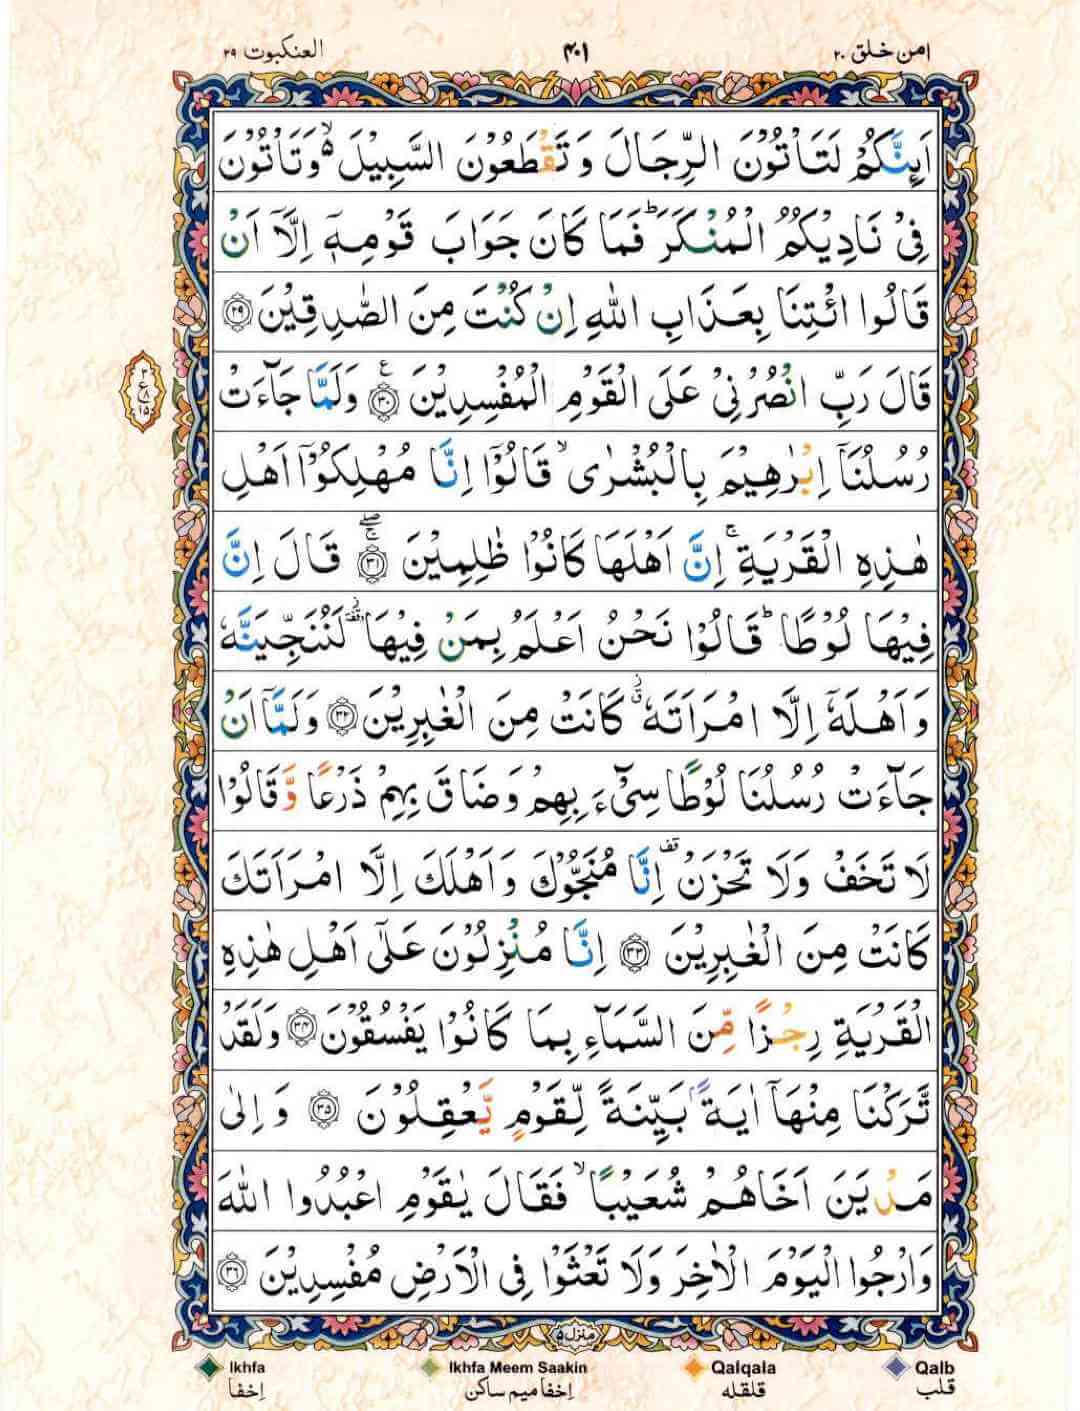 امن خلق ۲۰
۴۰۱
العنکبوت ۲۹
اَئِنَّكُمْ لَتَاْتُوْنَ الرِّجَالَ وَتَقْطَعُوْنَ السَّبِيْلَ ۙ۬ وَتَاْتُوْنَ
فِیْ نَادِيْكُمُ الْمُنْكَرَ ؕ فَمَا كَانَ جَوَابَ قَوْمِهٖۤ اِلَّاۤ اَنْ
قَالُوا ائْتِنَا بِعَذَابِ اللّٰهِ اِنْ كُنْتَ مِنَ الصّٰدِقِيْنَ ﴿۲۹﴾
قَالَ رَبِّ انْصُرْنِیْ عَلَى الْقَوْمِ الْمُفْسِدِيْنَ ﴿۳۰﴾ ع وَلَمَّا جَآءَتْ
۳ ع ۸ ۱۵
رُسُلُنَاۤ اِبْرٰهِيْمَ بِالْبُشْرٰى ۙ قَالُوْۤا اِنَّا مُهْلِكُوْۤا اَهْلِ
هٰذِهِ الْقَرْيَةِ ۚ اِنَّ اَهْلَهَا كَانُوْا ظٰلِمِيْنَ ﴿۳۱﴾ ۖۚ قَالَ اِنَّ
فِيْهَا لُوْطًا ؕ قَالُوْا نَحْنُ اَعْلَمُ بِمَنْ فِيْهَا ز وقفة لَنُنَجِّيَنَّهٗ
وَاَهْلَهٗۤ اِلَّا امْرَاَتَهٗ ز ق كَانَتْ مِنَ الْغٰبِرِيْنَ ﴿۳۲﴾ وَلَمَّاۤ اَنْ
جَآءَتْ رُسُلُنَا لُوْطًا سِیْٓءَ بِهِمْ وَضَاقَ بِهِمْ ذَرْعًا وَّقَالُوْا
لَا تَخَفْ وَلَا تَحْزَنْ قف اِنَّا مُنَجُّوْكَ وَاَهْلَكَ اِلَّا امْرَاَتَكَ
كَانَتْ مِنَ الْغٰبِرِيْنَ ﴿۳۳﴾ اِنَّا مُنْزِلُوْنَ عَلٰۤى اَهْلِ هٰذِهِ
الْقَرْيَةِ رِجْزًا مِّنَ السَّمَآءِ بِمَا كَانُوْا يَفْسُقُوْنَ ﴿۳۴﴾ وَلَقَدْ
تَّرَكْنَا مِنْهَاۤ اٰيَةًۢ بَيِّنَةً لِّقَوْمٍ يَّعْقِلُوْنَ ﴿۳۵﴾ وَاِلٰى
مَدْيَنَ اَخَاهُمْ شُعَيْبًا ۙ فَقَالَ يٰقَوْمِ اعْبُدُوا اللّٰهَ
وَارْجُوا الْيَوْمَ الْاٰخِرَ وَلَا تَعْثَوْا فِی الْاَرْضِ مُفْسِدِيْنَ ﴿۳۶﴾
منزل ۵
Ikhfa
Ikhfa Meem Saakin
Qalqala
Qalb
إخفا
إخفا میم ساکن
قلقله
قلب